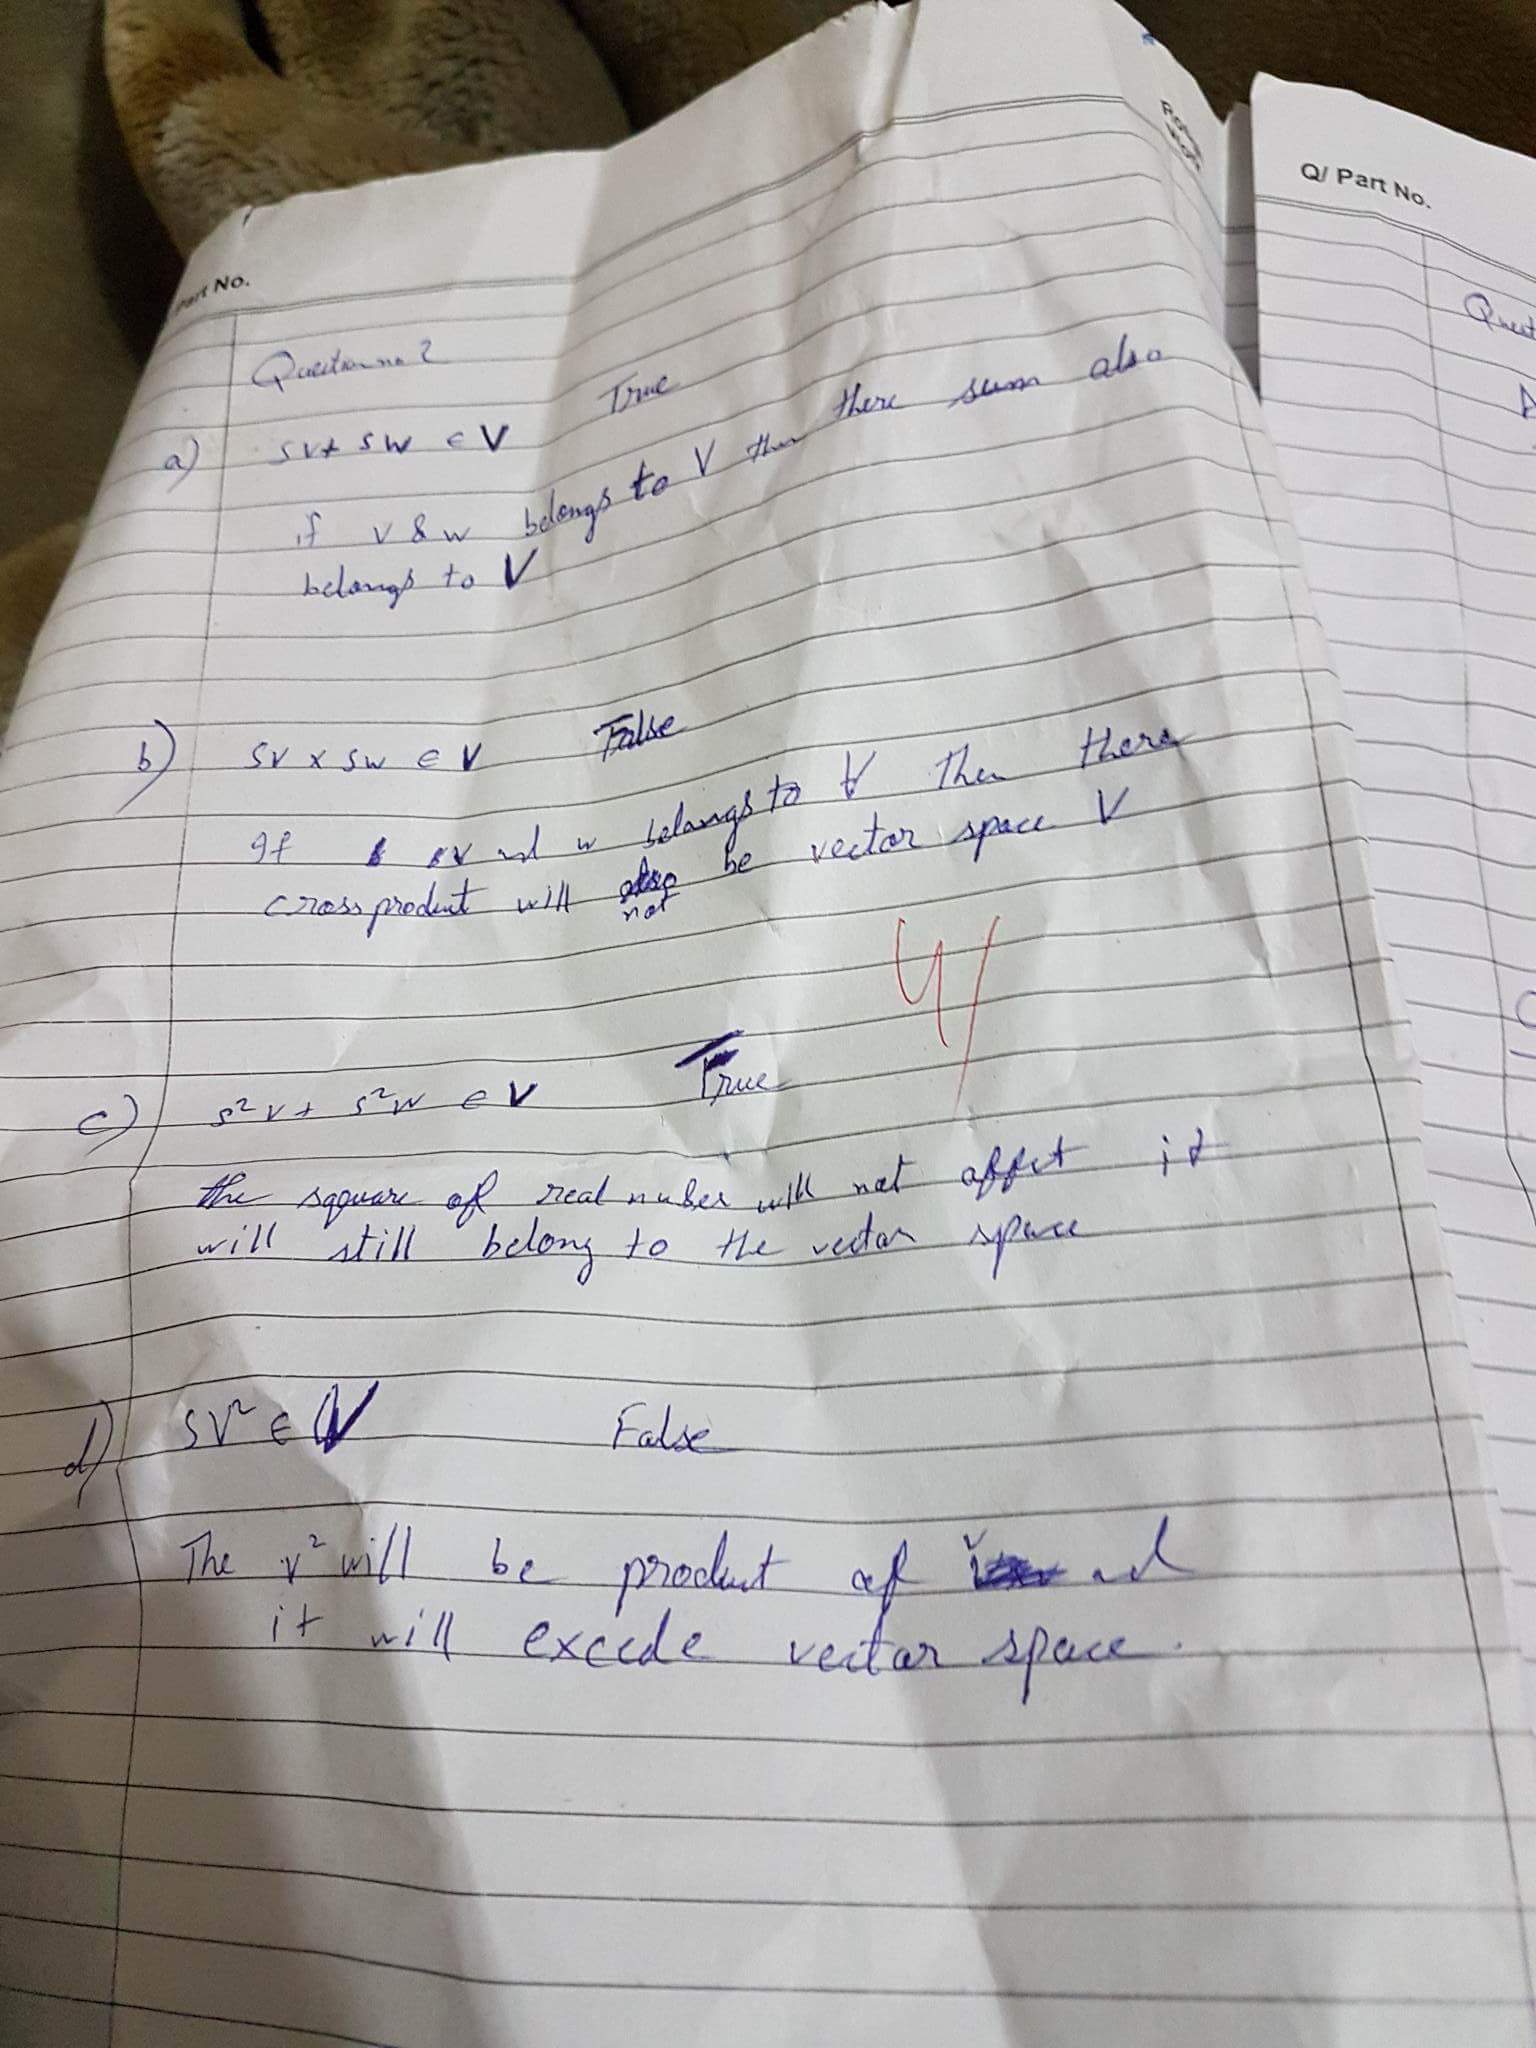 Part No.
Question no 2
a) sv + sw ∈ V True
if v & w belongs to V then there sum also
belongs to V
b) sv x sw ∈ V False
If v and w belongs to V then there
cross product will not be vector space V
4/
c) s²v + s²w ∈ V True
the square of real nuber will not affect it
will still belong to the vector space
d) sv² ∈ V False
The v² will be product of v and
it will excede vector space.
Q/ Part No.
Quest